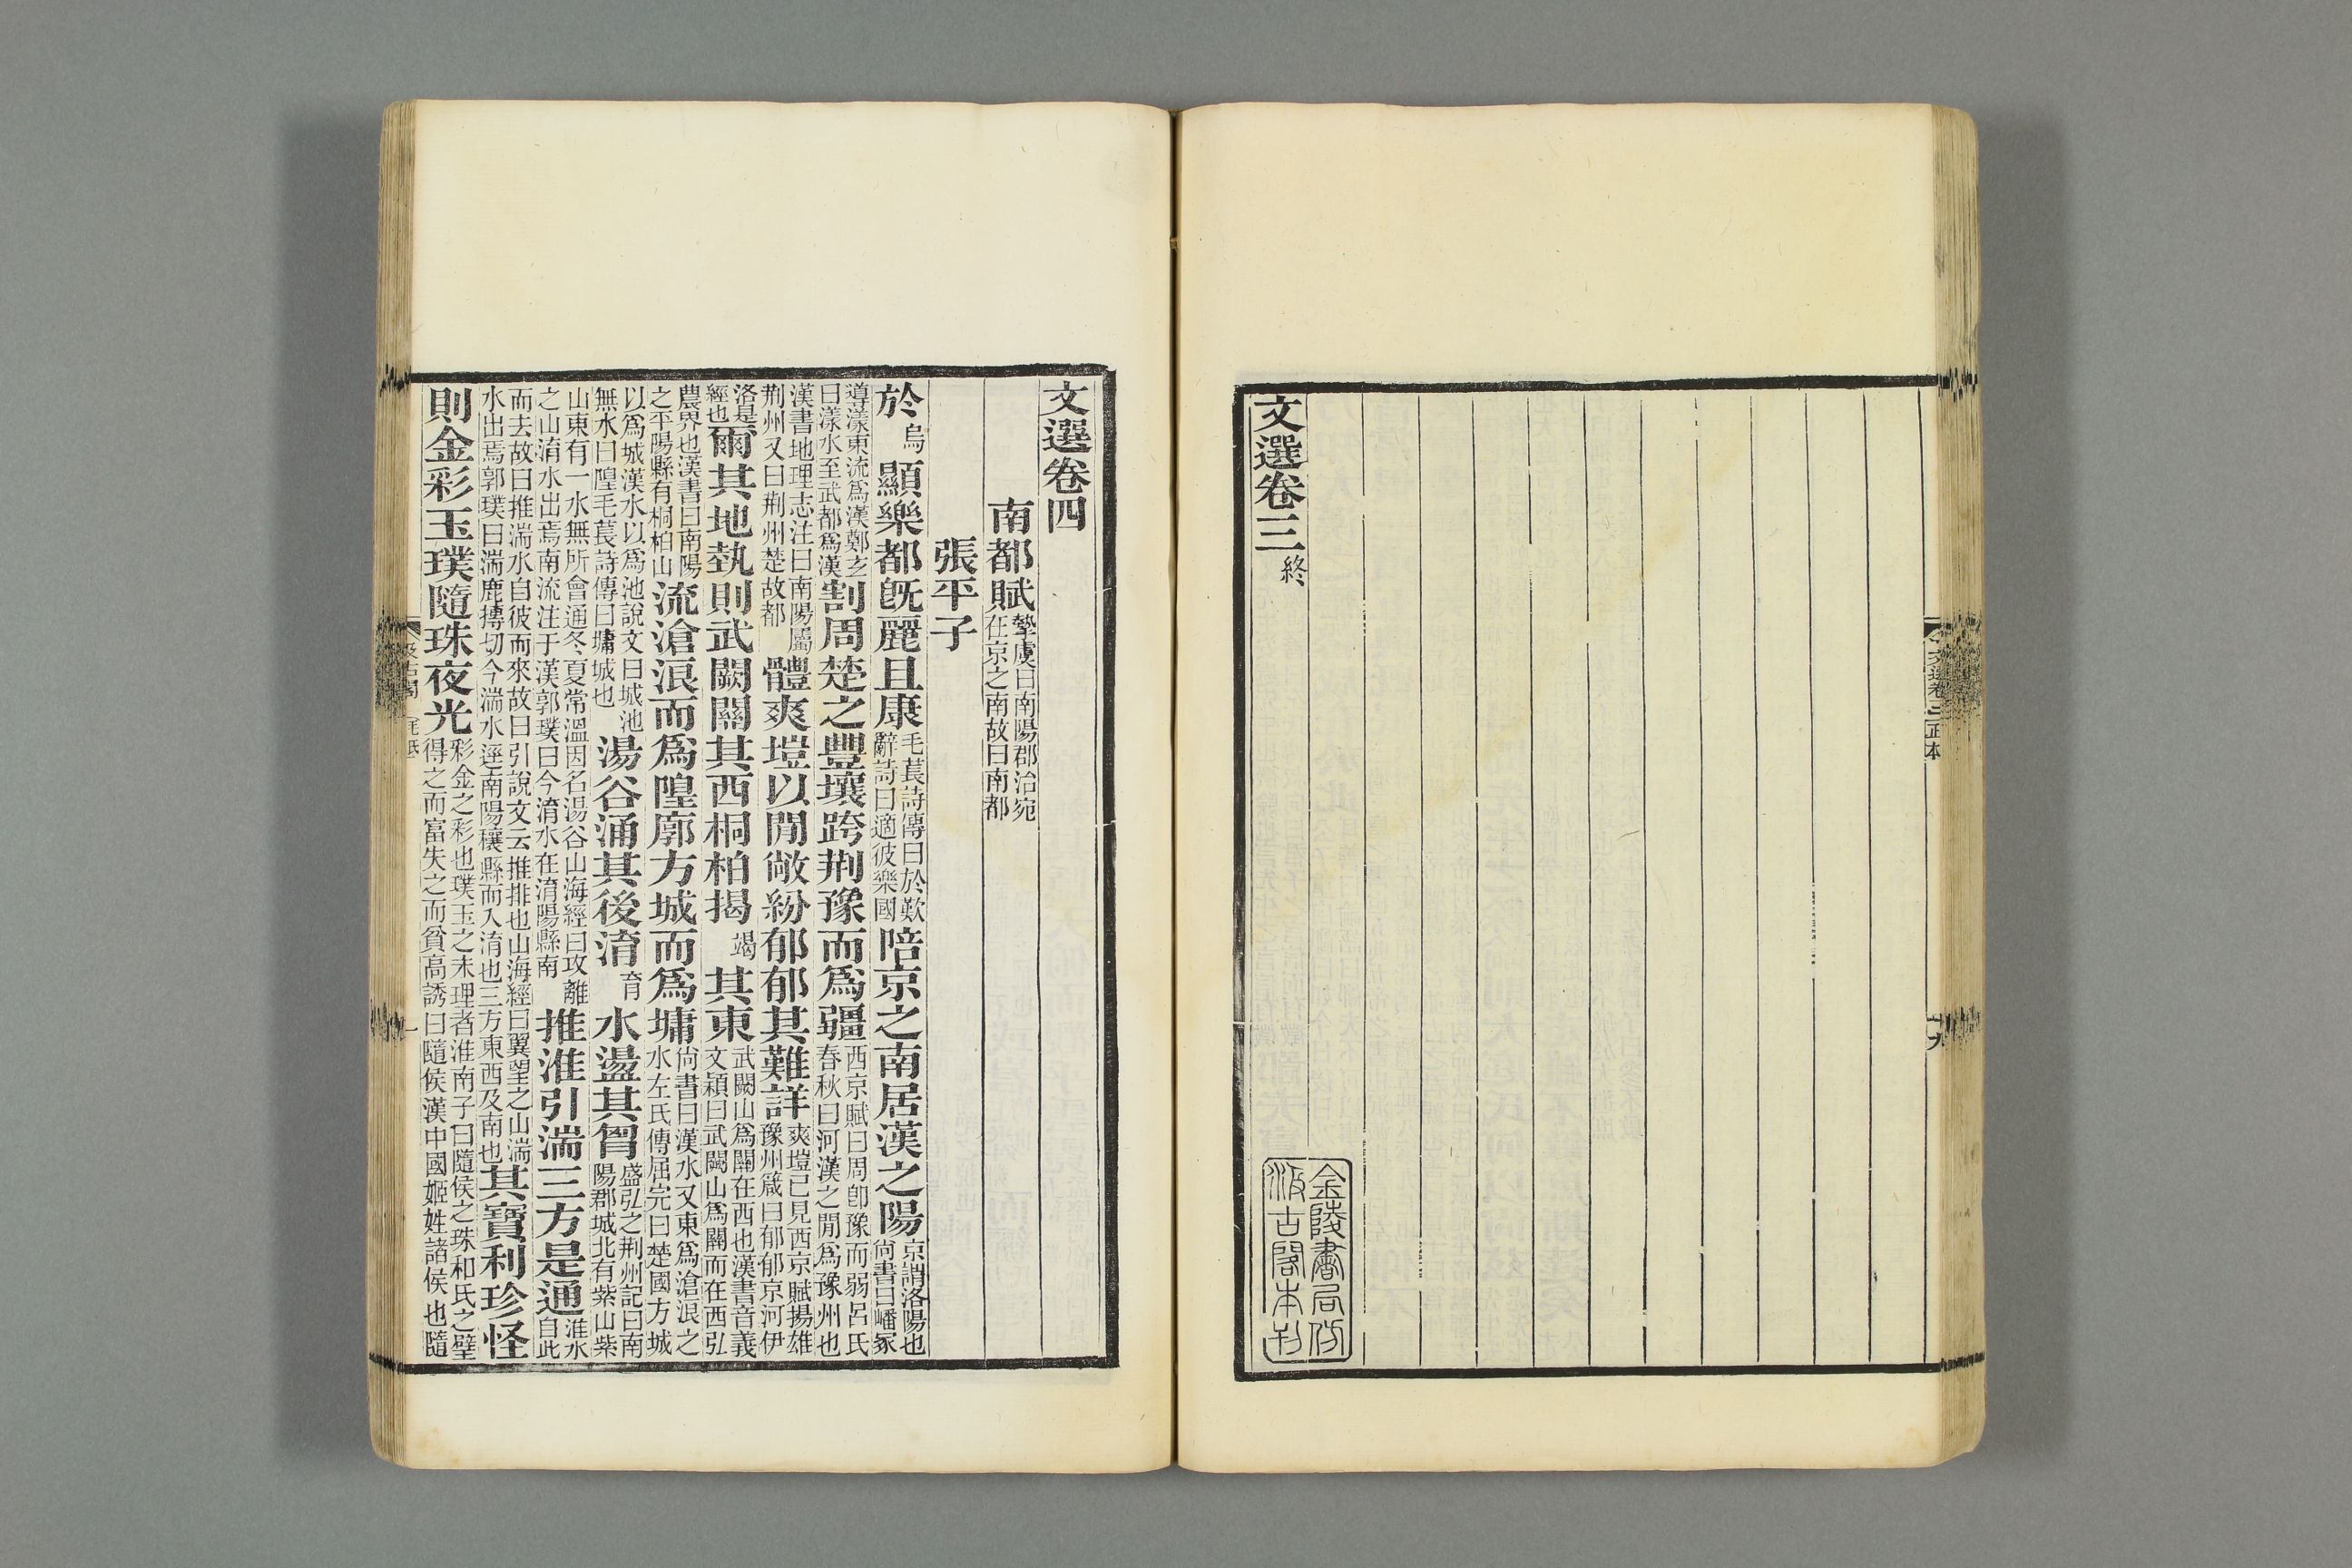 文選卷三
文選卷三終
金陵書局仿
汲古閣本刊
文選卷四
南都賦摯虞曰南陽郡治宛在京之南故曰南都
張平子
於烏顯樂都旣麗且康毛萇詩傳曰於歎辭詩曰適彼樂國陪京之南居漢之陽京謂洛陽也尙書曰嶓冢
導漾東流爲漢鄭玄曰漾水至武都爲漢割周楚之豐壤跨荆豫而爲疆西京賦曰周卽豫而弱呂氏春秋曰河漢之閒爲豫州也
漢書地理志注曰南陽屬荆州又曰荆州楚故都體爽塏以閒敞紛郁郁其難詳爽塏已見西京賦揚雄豫州箴曰郁郁京河伊
洛是經也爾其地埶則武闕關其西桐柏揭竭其東武闕山爲關在西也漢書音義文穎曰武闕山爲關而在西弘
農界也漢書曰南陽之平陽縣有桐柏山流滄浪而爲隍廓方城而爲墉尙書曰漢水又東爲滄浪之水左氏傳屈完曰楚國方城
以爲城漢水以爲池說文曰城池無水曰隍毛萇詩傳曰墉城也湯谷涌其後淯育水盪其胷盛弘之荆州記曰南陽郡城北有紫山紫
山東有一水無所會通冬夏常溫因名湯谷山海經曰攻離之山淯水出焉南流注于漢郭璞曰今淯水在淯陽縣南推淮引湍三方是通淮水自此
而去故曰推湍水自彼而來故曰引說文云推排也山海經曰翼望之山湍水出焉郭璞曰湍鹿摶切今湍水逕南陽穰縣而入淯也三方東西及南也其寶利珍怪
則金彩玉璞隨珠夜光彩金之彩也璞玉之未理者淮南子曰隨侯之珠和氏之璧得之而富失之而貧高誘曰隨侯漢中國姬姓諸侯也隨
汲古閣
一